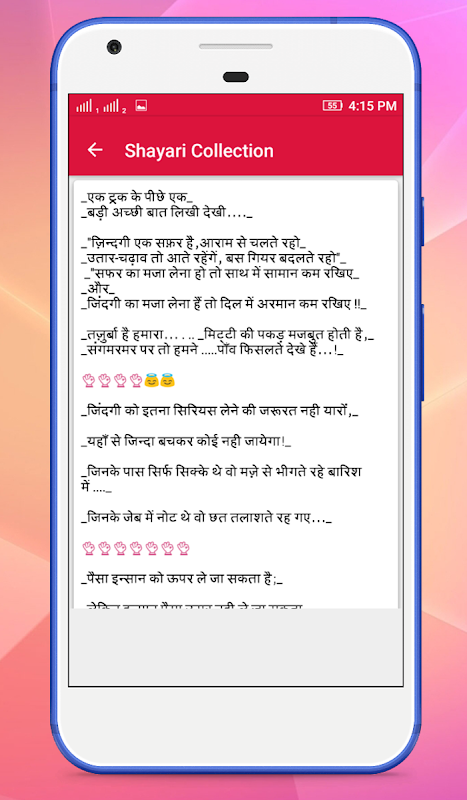 1 2 55 4:15 PM
Shayari Collection
_एक ट्रक के पीछे एक_
_बड़ी अच्छी बात लिखी देखी...._
_"ज़िन्दगी एक सफ़र है,आराम से चलते रहो_
_उतार-चढ़ाव तो आते रहेंगें, बस गियर बदलते रहो"_
_"सफर का मजा लेना हो तो साथ में सामान कम रखिए_
_और_
_जिंदगी का मजा लेना हैं तो दिल में अरमान कम रखिए !!_
_तज़ुर्बा है हमारा... . .. _मिट्टी की पकड़ मजबुत होती है,_
_संगमरमर पर तो हमने .....पाँव फिसलते देखे हैं...!_
👌👌👌👌😇😇
_जिंदगी को इतना सिरियस लेने की जरूरत नही यारों,_
_यहाँ से जिन्दा बचकर कोई नही जायेगा!_
_जिनके पास सिर्फ सिक्के थे वो मज़े से भीगते रहे बारिश
में ...._
_जिनके जेब में नोट थे वो छत तलाशते रह गए..._
👌👌👌👌👌👌👌
_पैसा इन्सान को ऊपर ले जा सकता है;_